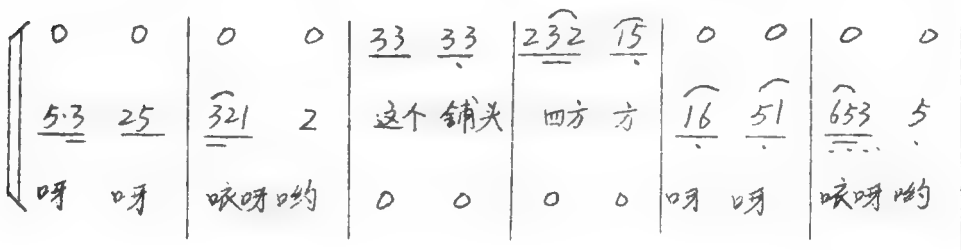 0 0 | 0 0 | 33 33 | 232 15 | 0 0 | 0 0
5·3 25 | 321 2 | 这个 铺头 | 四方 方 | 16 51 | 653 5
呀 呀 | 咴呀 哟 | 0 0 | 0 0 | 呀 呀 | 咴呀 哟